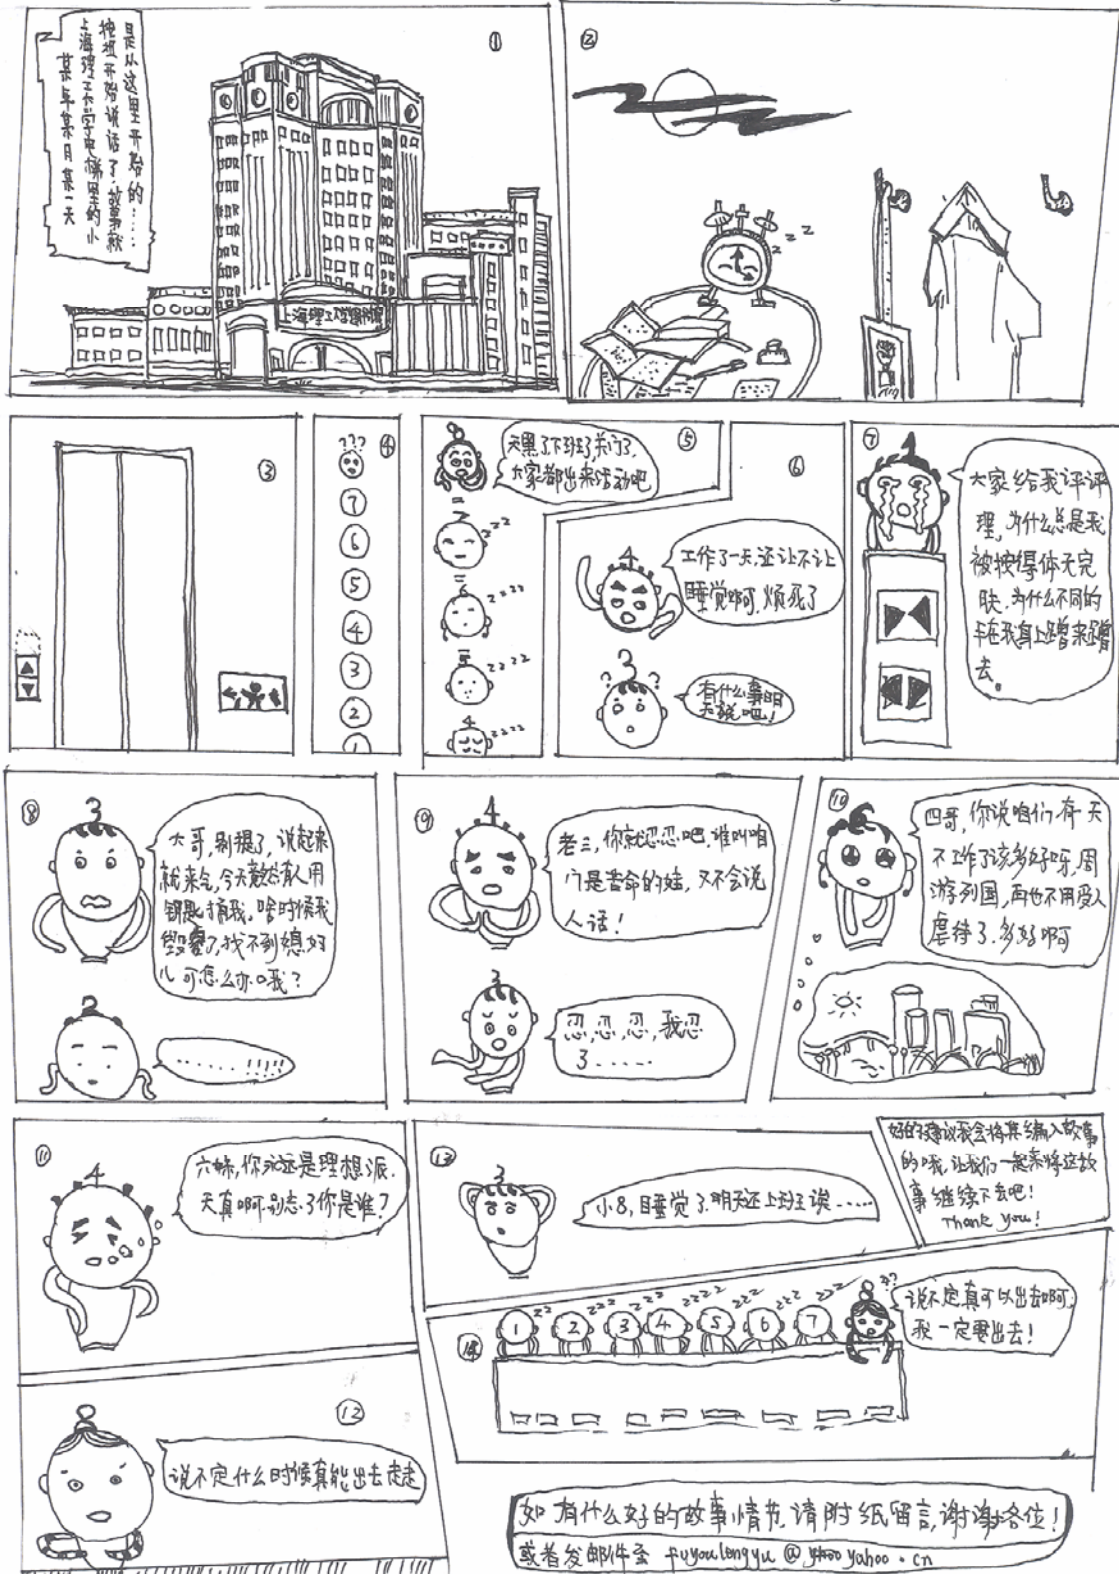 某年某月某一天
上海理工大学电梯里的小
按扭开始说话了.故事就
是从这里开始的……
①
②
z z z
③
④
???
⑦
⑥
⑤
④
③
②
⑤
天黑了,下班了,关门了,
大家都出来活动吧
7
zzz
6
zzzz
5
zzzz
4
zzzz
⑥
4
工作了一天,还让不让
睡觉啊,烦死了
3
? ?
有什么事明
天说吧!
⑦
1
大家给我评评
理,为什么总是我
被按得体无完
肤.为什么不同的
手在我身上蹭来蹭
去。
⑧
3
大哥,别提了,说起来
就来气,今天竟然有人用
钥匙捅我。啥时候我
毁容了,找不到媳妇
儿可怎么办哦?
2
......!!!!
⑨
4
老三,你就忍忍吧.谁叫咱
们是苦命的娃,又不会说
人话!
3
忍,忍,忍,我忍
了.....
⑩
6
四哥,你说咱们有一天
不工作了该多好呀,周
游列国,再也不用受人
虐待了.多好啊
⑪
4
六妹,你永远是理想派.
天真啊.别忘了你是谁?
⑫
说不定什么时候真能出去走走
⑬
3
小8,睡觉了.明天还上班诶......
好的建议我会将其编入故事
的哦,让我们一起来将这故
事继续下去吧!
Thank you!
⑭
1 2 3 4 5 6 7
zz zzz zzzz zzzz zzz zzz zzz
???
说不定真可以出去啊,
我一定要出去!
如有什么好的故事情节,请附纸留言,谢谢各位!
或者发邮件至 fuyoulongyu @ yahoo.cn